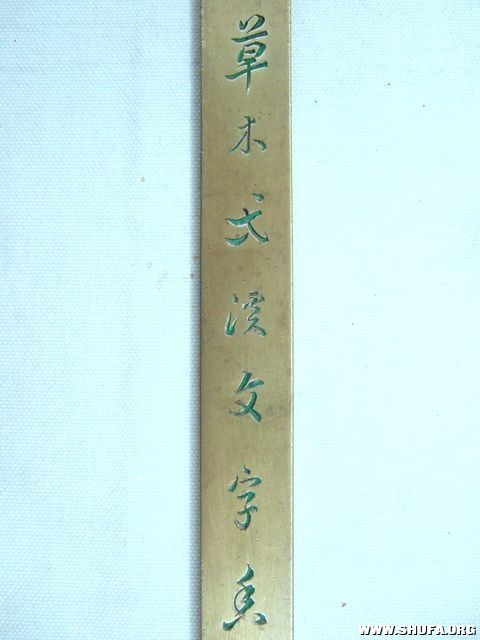 草木
溪文字香
WWW.SHUFA.ORG